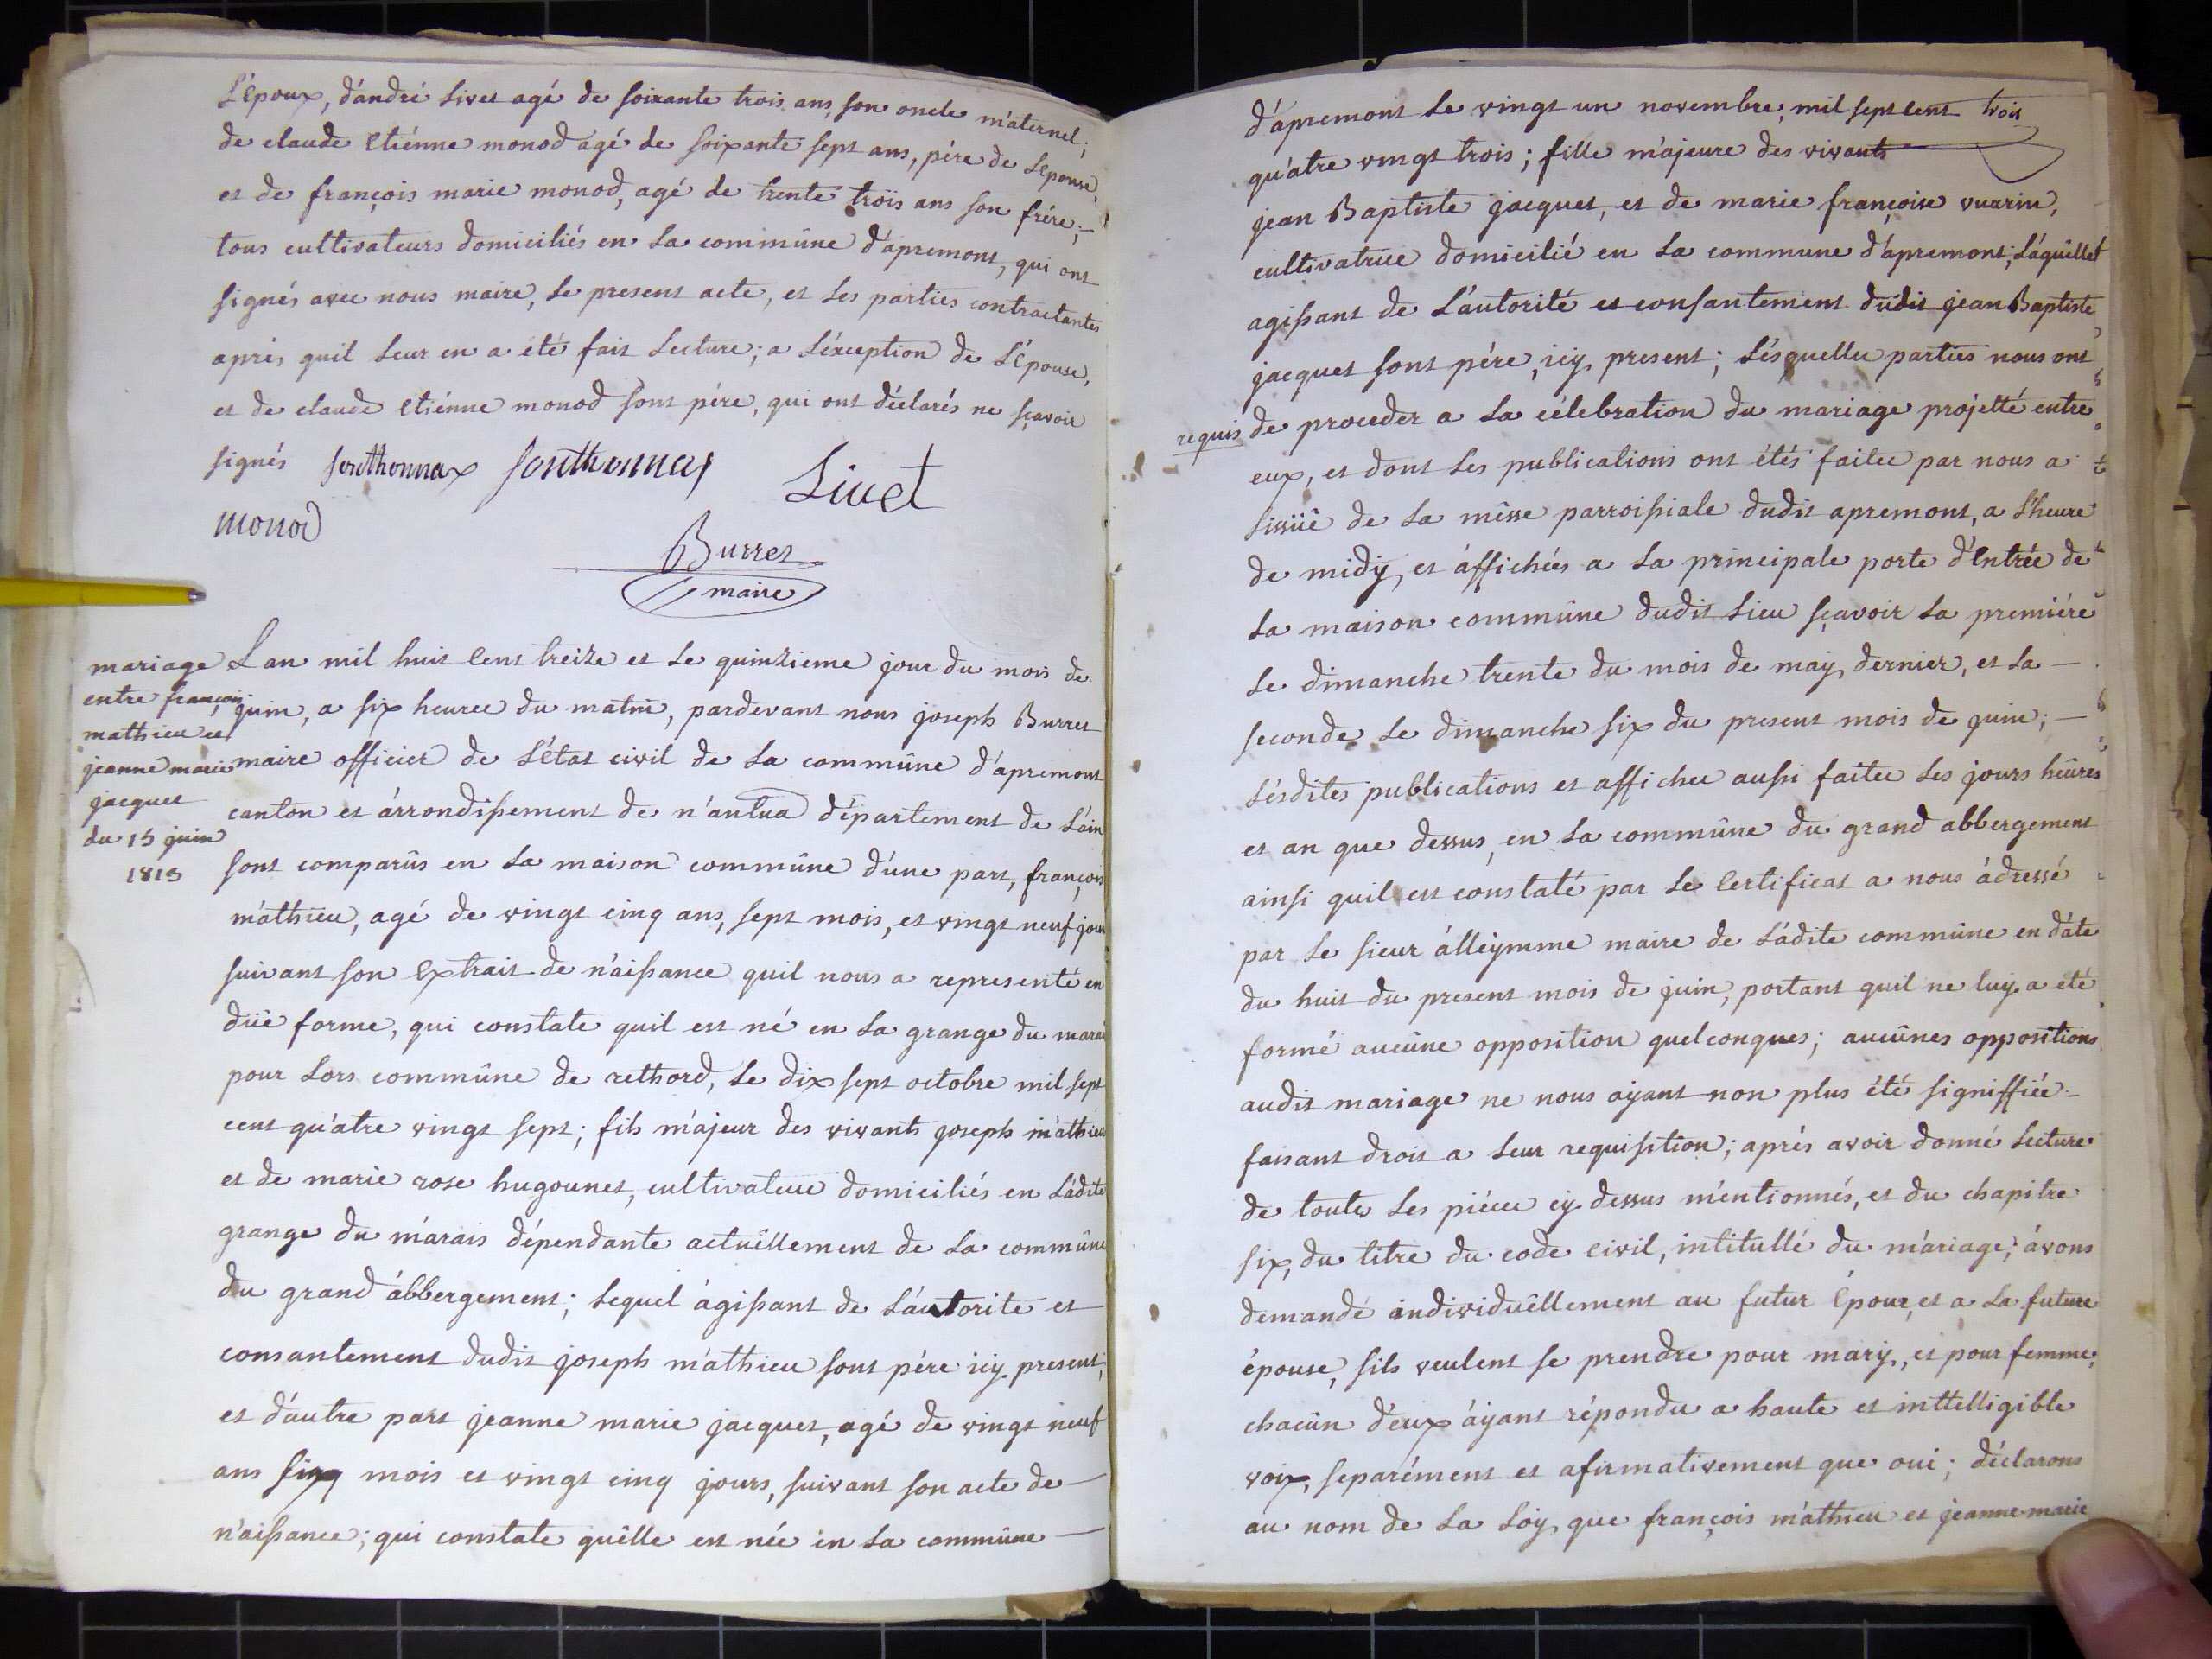 L'époux, d'andré Livet agé de soixante trois ans, son oncle m'aternel;
de claude Etiénne monod agé de soixante sept ans, pére de L'épouse,
et de françois marie monod, agé de trente trois ans son frére;
tous cultivateurs domiciliés en La commûne d'apremont, qui ont
signés avec nous maire, Le present acte, et Les parties contractantes
aprés quil Leur en a été fait Lecture; a L'éxception de L'Epouse,
et de claude Etiénne monod sont pére, qui ont déclarés ne sçavoir
signés sonthonnax sonthonnax Livet
monod
Burret
maire
mariage
entre françois
mathieu et
jeanne marie
jacquet
du 15 juin
1813
L an mil huit Cent treize et Le quinzieme jour du mois de
juin, a six heures du matin, pardevant nous joseph Burret
maire officier de L'Etat civil de La commûne d'apremont
canton et árrondissement de n'antua département de L'áin
sont comparûs en La maison commûne d'une part, françois
m'athieu, agé de vingt cinq ans, sept mois, et vingt neuf jours
suivant son Extrait de n'aissance quil nous a representé en
düe forme, qui constate quil est né en La grange du marais
pour Lors commûne de rethord, Le dix sept octobre mil sept
cent qu'atre vingt sept; fils m'ajeur des vivants joseph m'athieu
et de marie rose hugounet, cultivateurs domiciliés en L'ádite
grange du m'arais dépendante actuêllement de La commûne
du grand ábbergement; Lequel ágissant de L'áutorite et
consantement dudit joseph m'athieu sont pére icy present;
et d'autre part jeanne marie jacquet, agé de vingt neuf
ans six mois et vingt cinq jours, suivant son acte de
n'aissance; qui constate qu'êlle est née en La commûne
d'apremont Le vingt un novembre, mil sept Cent trois
qu'atre vingt trois; fille m'ajeure des vivants
jean Baptiste jacquet, et de marie françoise vuarin,
cultivatrice domicilié en La commune d'apremont; L'aquêlle
agissant de L'autorité et consantement dudit jean Baptiste
jacquet sont pére, icy present; L'ésquelles parties nous ont
requis de proceder a La célebration du mariage projetté entre
eux, et dont Les publications ont étés faites par nous a
L'issüe de La mêsse parroissiale dudit apremont, a L'heure
de midy, et áffichées a La principale porte d'Entrée de
La maison commûne dudit Lieu sçavoir La premiére
Le dimanche trente du mois de may dernier, et La
seconde Le dimanche six du present mois de juin;
L'ésdites publications et affiches aussi faites Les jours heûres
et an que dessus, en La commûne du grand abbergement
ainsi quil est constaté par Le Certificat a nous ádressé
par Le sieur álléymme maire de L'ádite commûne en d'áte
du huit du present mois de juin, portant quil ne luy a été
formé aucûne opposition quelconques; aucûnes oppositions
audit mariage ne nous ayant non plus été signiffiée
faisant droit a Leur requisition; aprés avoir donné Lecture
de toutes Les piéces cy dessus m'entionnés, et du chapitre
six, du titre du code Civil, intitullé du m'ariage; ávons
demandé individuêllement au futur Epoux, et a La future
épouse, s'ils veulent se prendre pour mary, et pour femme;
chacûn d'eux áyant répondu a haute et inttelligible
voix, separément et afirmativement que oui; déclarons
au nom de La Loy, que françois m'athieu et jeanne marie